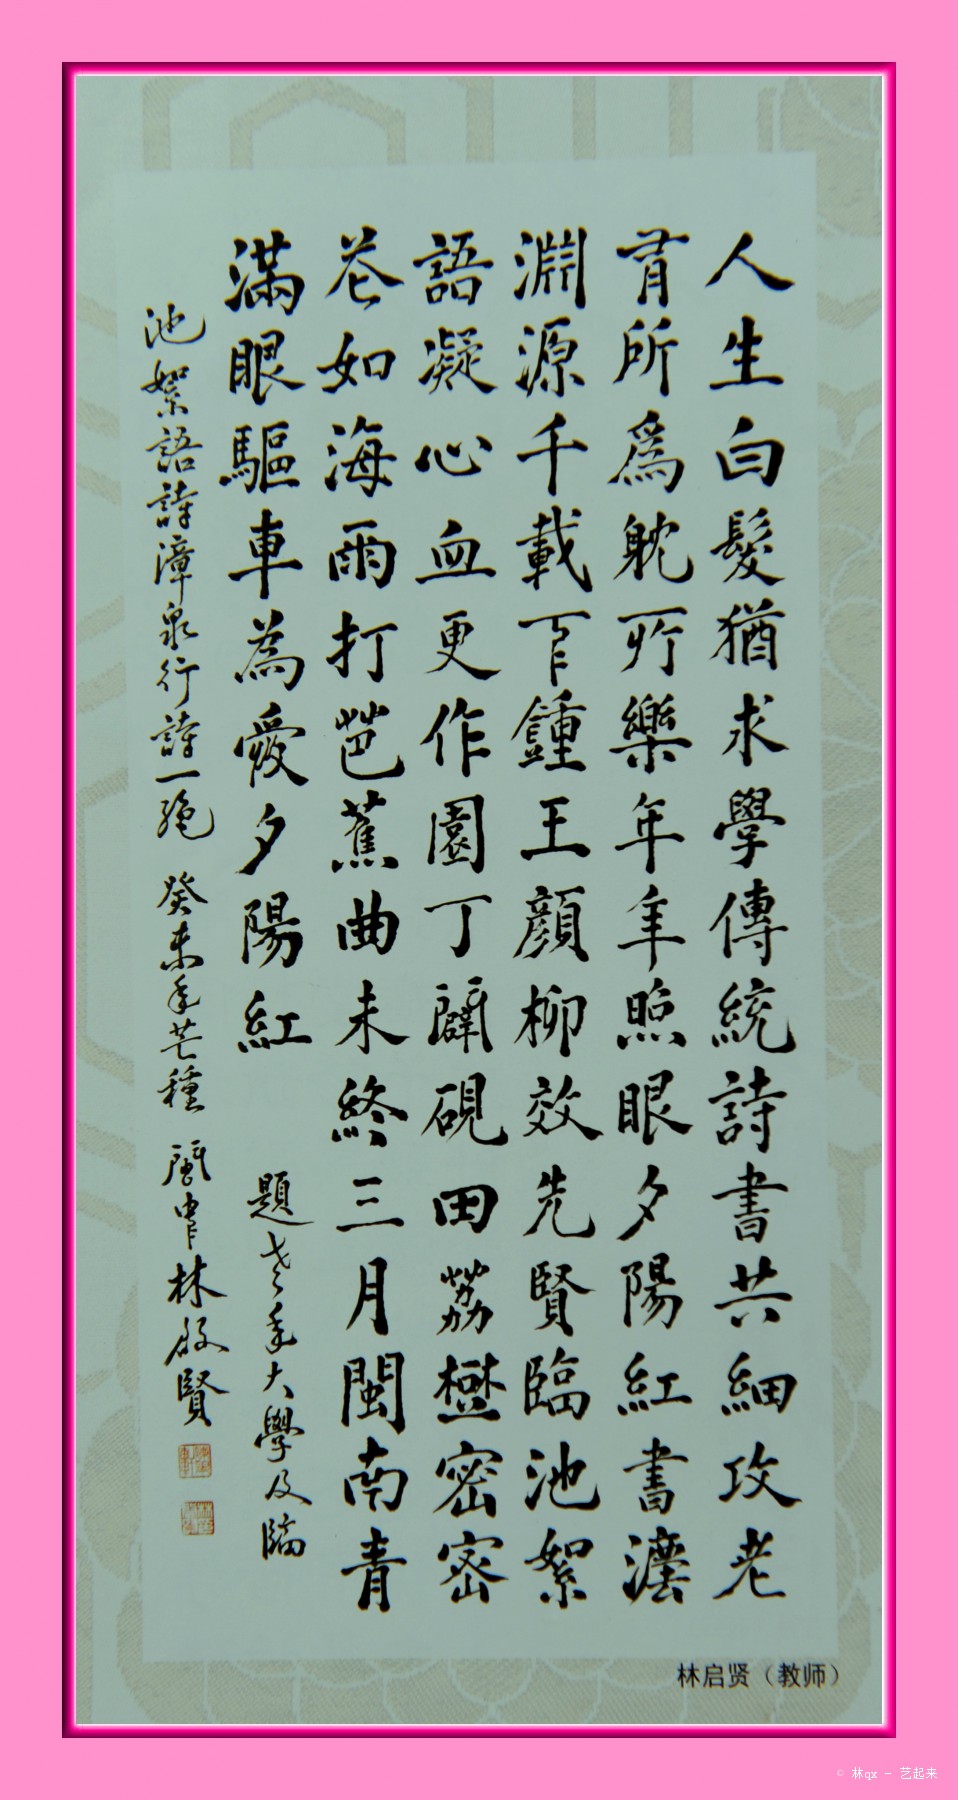 人生白髮猶求學傳統詩書共細攻老
有所爲躭所樂年年照眼夕陽紅書灋
淵源千載下鍾王顏柳效先賢臨池絮
語凝心血更作園丁闢硯田荔密密
花如海雨打芭蕉曲未終三月閩南青
滿眼驅車為愛夕陽紅
題老年大學及臨
池絮語詩漳泉行詩一絕 癸未年芒種 閩中林啟賢
林启贤（教师）
© 林qx - 艺起来